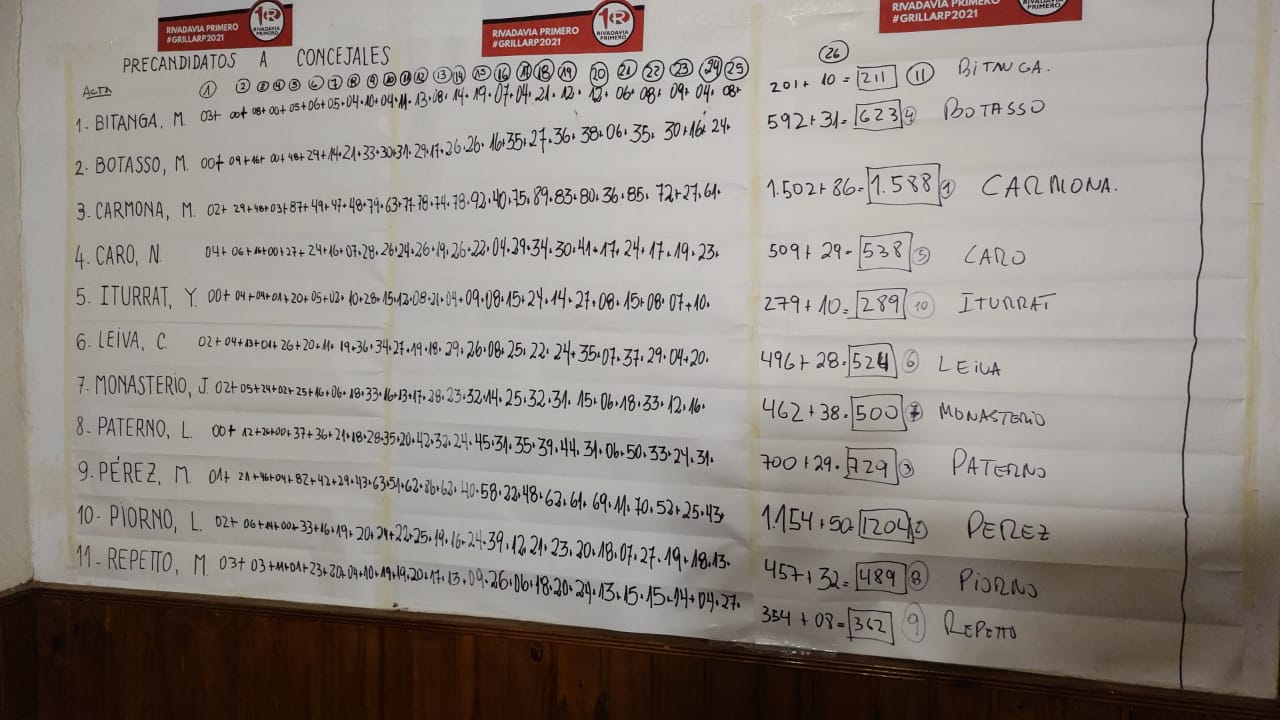 RIVADAVIA PRIMERO
#GRILLARP2021
RIVADAVIA PRIMERO
RIVADAVIA PRIMERO
#GRILLARP2021
RIVADAVIA PRIMERO
RIVADAVIA PRIMERO
#GRILLARP2021
PRECANDIDATOS A CONCEJALES
ACTA 1 2 3 4 5 6 7 8 9 10 11 12 13 14 15 16 17 18 19 20 21 22 23 24 25
26
1- BITANGA, M. 03+ 00+ 08+ 00+ 05+ 06+ 05+ 04+ 10+ 04+ 11+ 13+ 08+ 14+ 19+ 07+ 04+ 21+ 12+ 12+ 06+ 08+ 09+ 04+ 08+
201+ 10= 211 11 BITANGA.
2- BOTASSO, M. 00+ 09+ 16+ 00+ 48+ 29+ 14+ 21+ 33+ 30+ 31+ 29+ 17+ 26+ 26+ 16+ 35+ 27+ 36+ 38+ 06+ 35+ 30+ 16+ 24+
592+31= 623 4 BOTASSO
3- CARMONA, M. 02+ 29+ 48+ 03+ 87+ 49+ 47+ 48+ 79+ 63+ 77+ 78+ 74+ 78+ 92+ 40+ 75+ 89+ 83+ 80+ 36+ 85+ 72+ 27+ 61+
1.502+ 86= 1.588 1 CARMONA.
4- CARO, N. 04+ 06+ 14+ 00+ 27+ 24+ 16+ 07+ 28+ 26+ 24+ 26+ 19+ 26+ 22+ 04+ 29+ 34+ 30+ 41+ 17+ 24+ 17+ 19+ 23+
509+ 29= 538 5 CARO
5- ITURRAT, Y. 00+ 04+ 04+ 01+ 20+ 05+ 02+ 10+ 28+ 15+ 12+ 08+ 21+ 04+ 09+ 08+ 15+ 24+ 14+ 27+ 08+ 15+ 08+ 07+ 10+
279+ 10= 289 10 ITURRAT
6- LEIVA, C. 02+ 04+ 13+ 01+ 26+ 20+ 11+ 19+ 36+ 34+ 27+ 19+ 18+ 29+ 26+ 08+ 25+ 22+ 24+ 35+ 07+ 37+ 29+ 04+ 20+
496+ 28= 524 6 LEIVA
7- MONASTERIO, J. 02+ 05+ 24+ 02+ 25+ 16+ 06+ 18+ 33+ 16+ 13+ 17+ 28+ 23+ 32+ 14+ 25+ 32+ 31+ 15+ 06+ 18+ 33+ 12+ 16+
462+38= 500 7 MONASTERIO
8- PATERNO, L. 00+ 12+ 26+ 00+ 37+ 36+ 21+ 18+ 28+ 35+ 20+ 42+ 32+ 24+ 45+ 31+ 35+ 39+ 44+ 31+ 06+ 50+ 33+ 24+ 31+
700+29= 729 3 PATERNO
9- PÉREZ, M. 01+ 21+ 46+ 04+ 82+ 42+ 29+ 43+ 63+ 51+ 62+ 86+ 62+ 40+ 58+ 22+ 48+ 62+ 61+ 69+ 11+ 70+ 52+ 25+ 43+
1.154+50= 1204 2 PEREZ
10- PIORNO, L. 02+ 06+ 14+ 00+ 33+ 16+ 19+ 20+ 24+ 22+ 25+ 19+ 16+ 24+ 39+ 12+ 21+ 23+ 20+ 18+ 07+ 27+ 19+ 18+ 13+
457+ 32= 489 8 PIORNO
11- REPETTO, M. 03+ 03+ 11+ 01+ 23+ 20+ 04+ 10+ 19+ 19+ 20+ 17+ 13+ 09+ 26+ 06+ 18+ 20+ 24+ 13+ 15+ 15+ 14+ 04+ 27+
354 + 08= 362 9 REPETTO